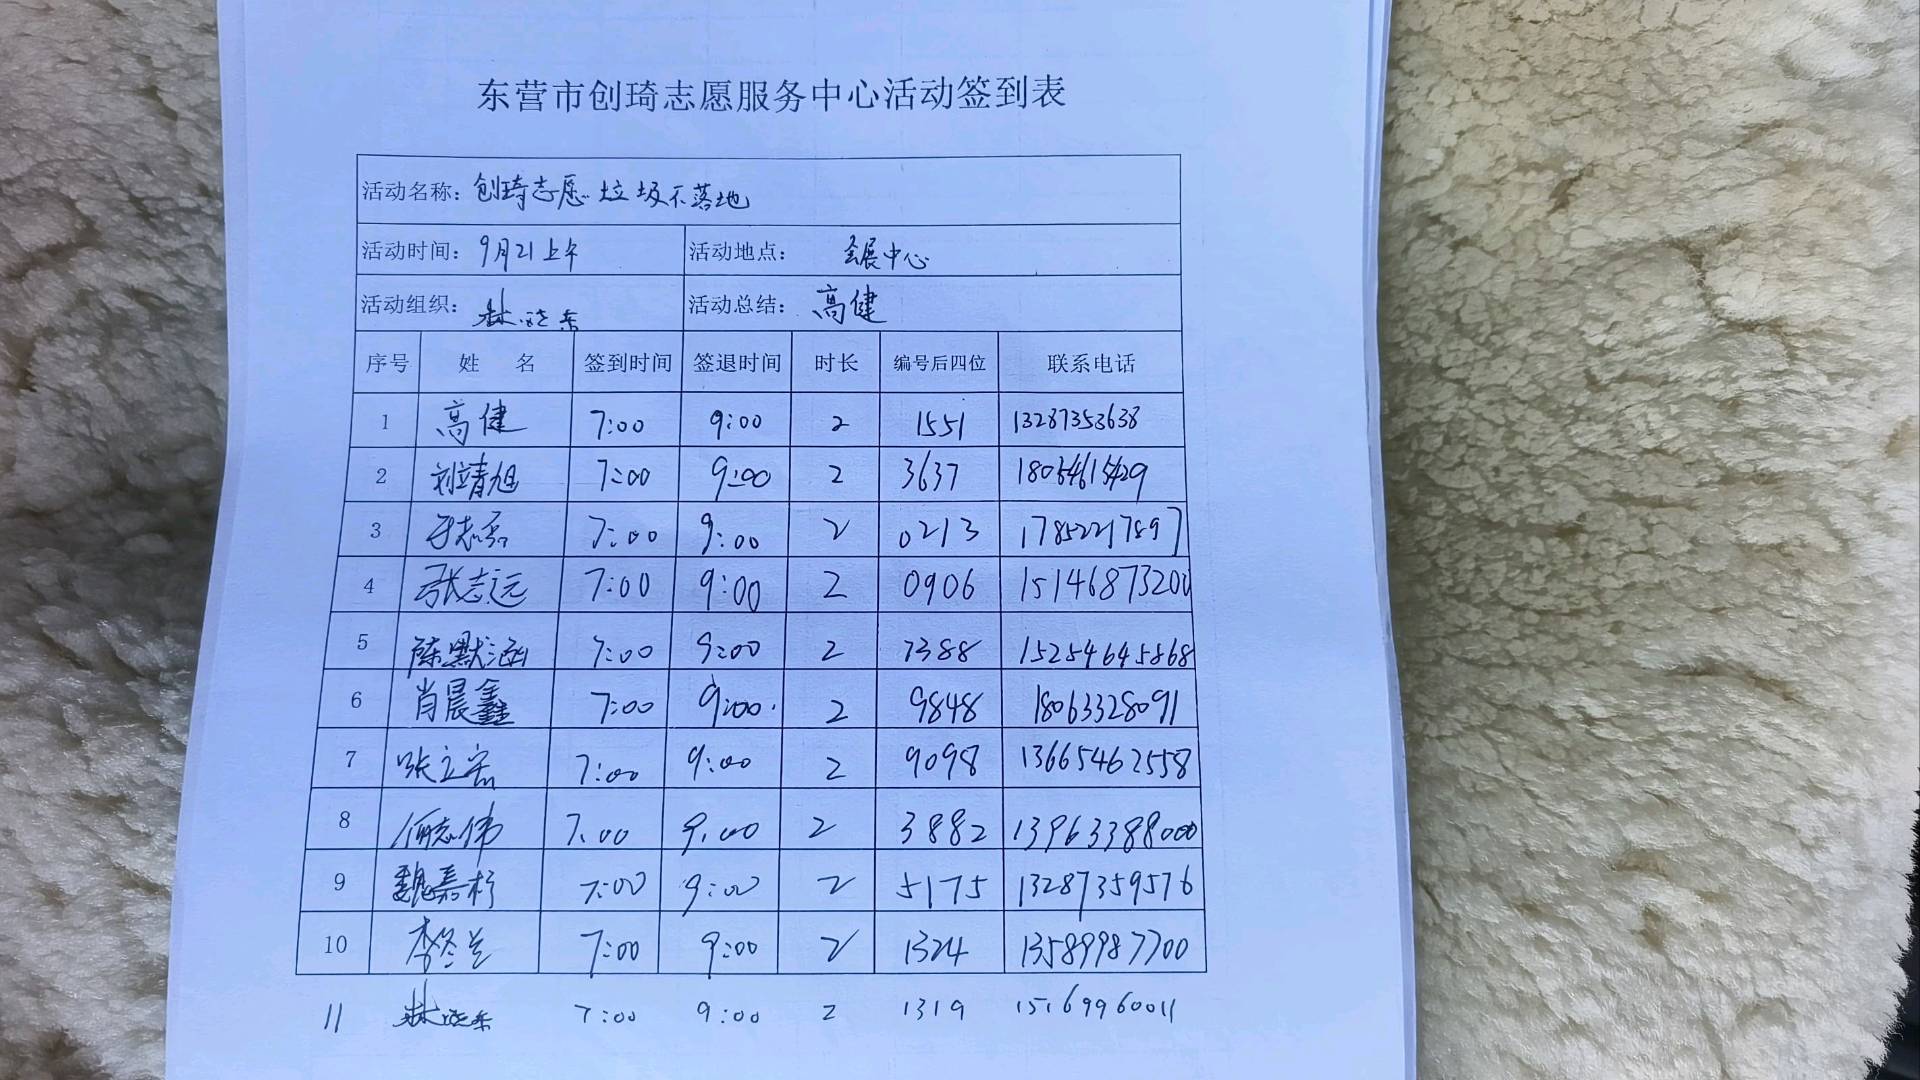 东营市创琦志愿服务中心活动签到表
活动名称：创琦志愿垃圾不落地
活动时间：9月21上午 活动地点：会展中心
活动组织：林晓东 活动总结：高健
序号 姓名 签到时间 签退时间 时长 编号后四位 联系电话
1 高健 7:00 9:00 2 1551 13287353638
2 刘靖旭 7:00 9:00 2 3637 18054615429
3 7:00 9:00 2 0213 17852217897
4 张志远 7:00 9:00 2 0906 15146873200
5 陈默涵 7:00 9:00 2 7388 15254645868
6 肖晨鑫 7:00 9:00 2 9848 18063328091
7 张立宏 7:00 9:00 2 9098 13665462558
8 何志伟 7:00 9:00 2 3882 13963388000
9 魏嘉杉 7:00 9:00 2 5175 13287359576
10 李冬兰 7:00 9:00 2 1324 13589987700
11 林晓东 7:00 9:00 2 1319 15169960011